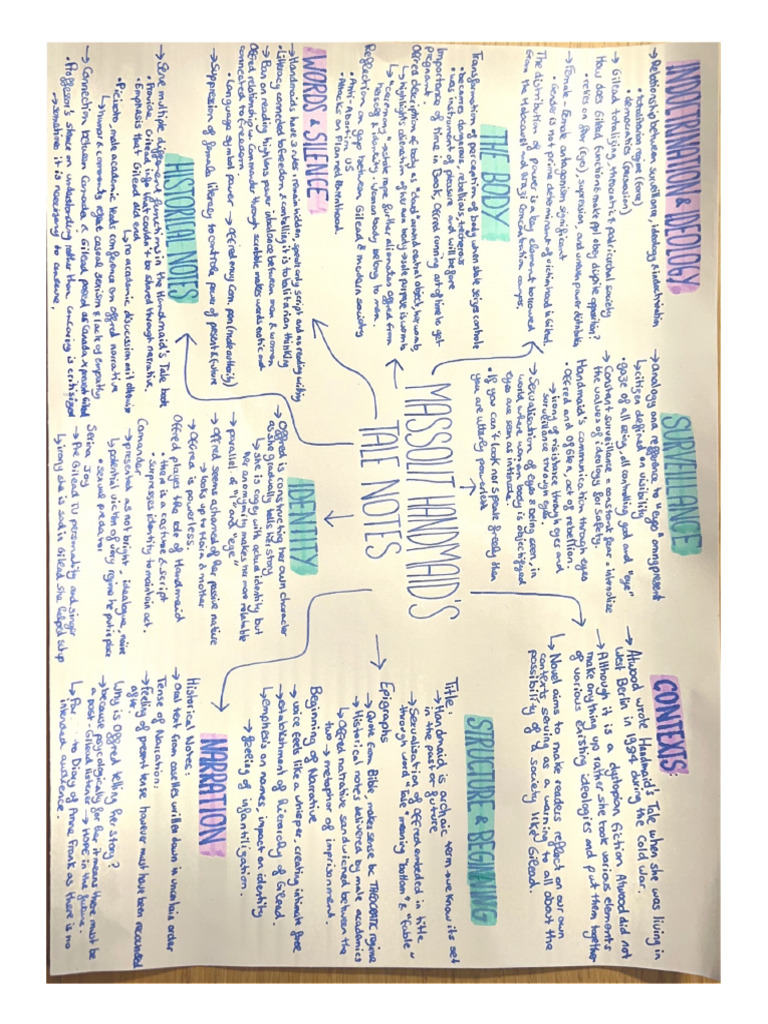 MASSOLIT HANDMAID'S
TALE NOTES
INDOCTRINATION & IDEOLOGY:
→ Relationship between surveillance, ideology & indoctrination
• totalitarian regime (force)
• democratic (persuasion)
↳ Gilead totalising, theocratic & patriarchal society
How does Gilead function & make ppl obey dispite opposition?
• relies on fear (eyes), supression, and uneven power distribution
→ Female-female antagonism significant
• Gender is not prime determinant of victimhood in Gilead.
The distribution of power is a key element borrowed
from the Holocaust and Nazi Concentration camps.
SURVEILLANCE
→ analogy and refference to "eye" omnipresent
↳ citizen defined on visibility
• gaze of all seing, all controlling god and "eye"
→ Constant surveillance = constant fear • internalize
the values of ideology for safety.
Handmaid's communication through eyes
• Offred and Ofglen, act of rebellion.
→ irony of risistance through eye and
surveillance through eye
→ Sexualisation of eyes & being seen, in
world where women body is objectifyed
eyes are seen as intimate.
• If you can't look nor speak freely then
you are utterly powerless
CONTEXTS:
→ Atwood wrote Handmaid's Tale when she was living in
West Berlin in 1984 during the Cold War.
→ Although it is a dystopian fiction Atwood did not
make anything up rather she took various elements
of various existing ideologies and put them together
↳ Novel aims to make readers reflect on our own
contexts serving as a warning to all about the
possibility of a society like Gilead.
THE BODY
Transformation of perception of body when state seizes controle
• became dangerous, rebellious, treacherous
• was instrument of pleasure and will before
Importance of time in Book, Offred running out of time to get
pregnant.
Offred description of body as "cloud" around central object, her womb,
↳ highlights alienation of her own body → sole purpose is womb
→ "ceremony" → state rape further alienates offred from
herself & identity. Women body belong to men.
Reflection on gap between Gilead & modern society
• Anti-abortion US
• Attacks on Planned Parenthood
WORDS & SILENCE
→ Handmaids have 3 rules: remain hidden, speak only script and no reading/writing
• Literacy connected to freedom & controlling it is totalitarian thinking
→ Ban on reading highlights power inbalance between men & women
Offred relationship w/ Commander through scrabble makes words exotic and
connected to freedom.
• Language symbol power → Offred envy Com. pen (male authority)
→ Suppression of female literacy to controle power of present & future
HISTORICAL NOTES
→ Serve multiple different functions in the Handmaid's Tale book
• Provide critical info that couldn't be shared through narrative.
• Emphasis that Gilead did end
↳ to academic discussion on it allows
• Pieixoto, male academic leads conference on offred narrative
↳ humor & comments reflect casual sexism & lack of empathy
→ Connection between Canada & Gilead period as Canada x present Gilead
• Professor's stance on understanding rather than censuring is critisized
→ sometimes it is necessary to censure.
IDENTITY
→ Offred is constructing her own character
as she gradually tells her story
↳ she is cagey with actual identity but
her anonymity makes her more relatable
→ parallel of "I" and "eye"
→ Offred seems ashamed of her passive nature
→ looks up to Moira & mother
→ Offred is powerless.
Offred plays the role of Handmaid
• there is a costume & script
• Surpresses identity to maintain act.
Comander:
→ presented as not bright - idealogue, naive
↳ potential victim of very regime he put in place
• sexual predator
Serina Joy
→ Pre Gilead TU personality and singer
↳ irony she is sad in Gilead she helped setup
STRUCTURE & BEGINNING
Title:
→ Handmaid is archaic term → we know its set
in the past or future
→ Sexualisation of Offred embedded in title
through word "Tale meaning "bottom" & "fable"
Epigraphs
→ Quote from Bible makes sense bc THEOCRATIC regime
→ Historical notes delivered by male academics
↳ Offred narrative sandwiched between the
two → metaphor of imprisonment.
Beginning of Narrative
→ voice feels like a whisper, creating intimate feel
→ establishment of hierarchy of Gilead.
↳ Emphasis on names, impact on identity
→ feeling of infantiligation.
NARRATION
Historical Notes:
→ Oral text from casettes written down in uncertain order
Tense of Narration:
→ feeling of present tense however must have been recorded
after
Why is Offred telling her story?
→ because psycologically for her it means there must be
a post-Gilead listener → hope in the future.
to Diary of Anne Frank as there is no
intended audience.